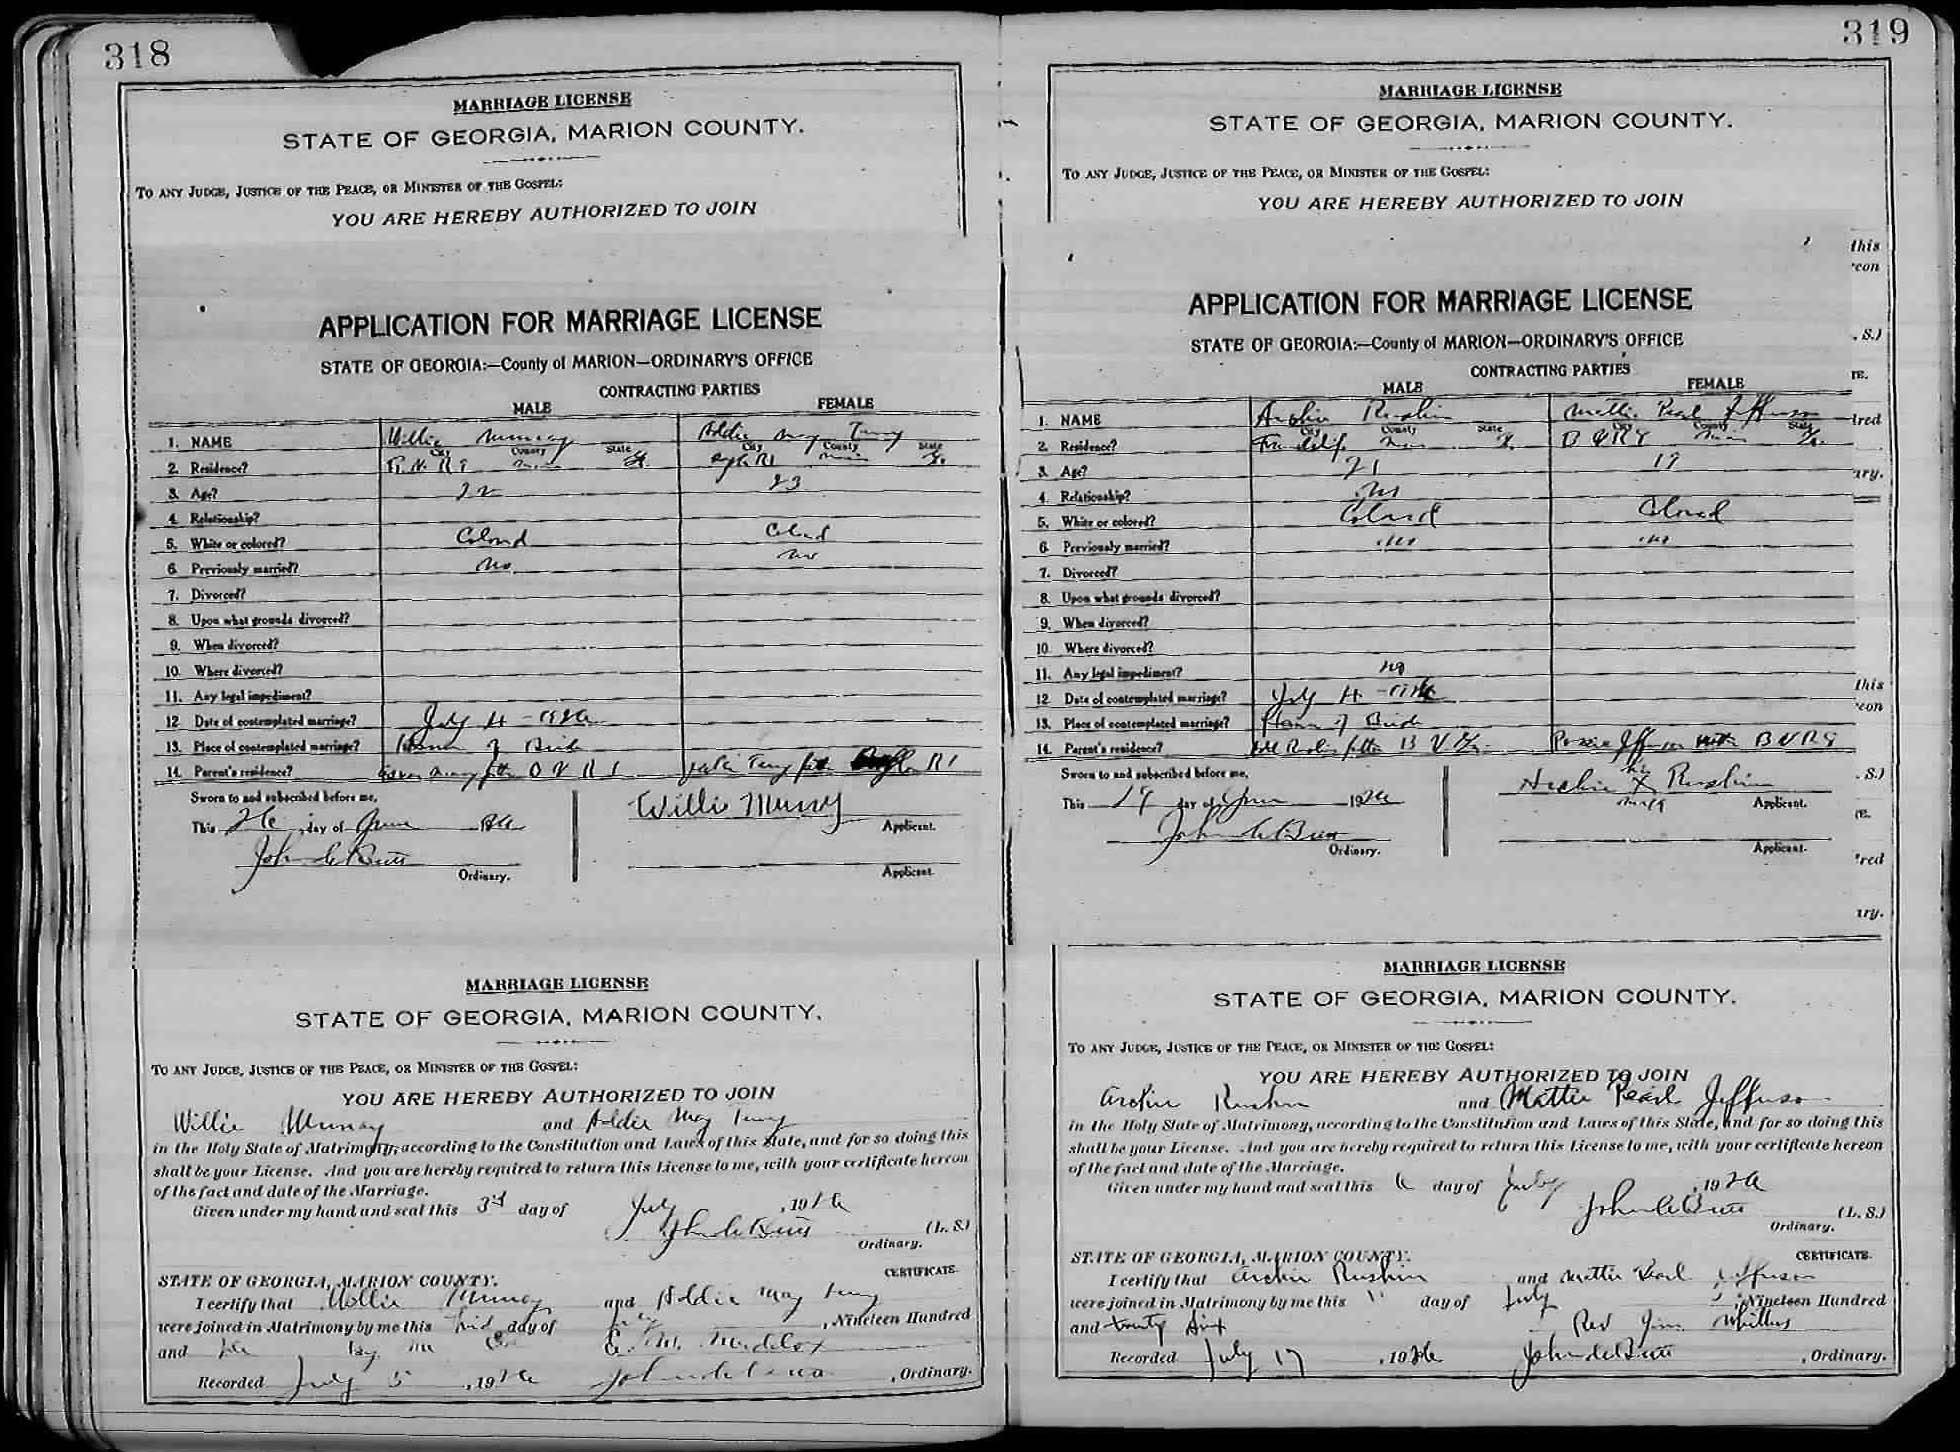 318
MARRIAGE LICENSE
STATE OF GEORGIA, MARION COUNTY.
TO ANY JUDGE, JUSTICE OF THE PEACE, OR MINISTER OF THE GOSPEL:
YOU ARE HEREBY AUTHORIZED TO JOIN
APPLICATION FOR MARRIAGE LICENSE
STATE OF GEORGIA:—County of MARION—ORDINARY'S OFFICE
CONTRACTING PARTIES
MALE FEMALE
1. NAME Willie Murray Addie May
City County State City County State
2. Residence? R1
3. Age? 23
4. Relationship?
5. White or colored? Colord Colord
6. Previously married? No no
7. Divorced?
8. Upon what grounds divorced?
9. When divorced?
10. Where divorced?
11. Any legal impediment?
12. Date of contemplated marriage? July 4 - 1926
13. Place of contemplated marriage? Home of Bride
14. Parent's residence? R1 R1
Sworn to and subscribed before me,
This 26 day of June 26
John C Butt
Ordinary.
Willie Murray
Applicant.
Applicant.
MARRIAGE LICENSE
STATE OF GEORGIA, MARION COUNTY.
TO ANY JUDGE, JUSTICE OF THE PEACE, OR MINISTER OF THE GOSPEL:
YOU ARE HEREBY AUTHORIZED TO JOIN
Willie Murray and Addie May
in the Holy State of Matrimony, according to the Constitution and Laws of this State, and for so doing this
shall be your License. And you are hereby required to return this License to me, with your certificate hereon
of the fact and date of the Marriage.
Given under my hand and seal this 3rd day of July , 1926
John C Butt (L. S.)
Ordinary.
CERTIFICATE.
STATE OF GEORGIA, MARION COUNTY.
I certify that Murray and Addie May
were joined in Matrimony by me this day of July , Nineteen Hundred
and
Recorded July 5 , 1926 , Ordinary.
319
MARRIAGE LICENSE
STATE OF GEORGIA, MARION COUNTY.
TO ANY JUDGE, JUSTICE OF THE PEACE, OR MINISTER OF THE GOSPEL:
YOU ARE HEREBY AUTHORIZED TO JOIN
this
con
APPLICATION FOR MARRIAGE LICENSE
. S.)
STATE OF GEORGIA:—County of MARION—ORDINARY'S OFFICE
CONTRACTING PARTIES
TE.
MALE FEMALE
1. NAME Archie Rushin Mattie Pearl Jefferson
City County State City County State
dred
2. Residence?
3. Age? 21 19
ary.
4. Relationship? No
5. White or colored? Colord Colord
6. Previously married? No No
7. Divorced?
8. Upon what grounds divorced?
9. When divorced?
10. Where divorced?
11. Any legal impediment? no
12. Date of contemplated marriage? July 4 - 1926
this
con
13. Place of contemplated marriage? Home of Bride
14. Parent's residence?
Sworn to and subscribed before me,
. S.)
This 19 day of June 1926
John C Butt
Ordinary.
Archie his X mark Rushin
Applicant.
TE.
Applicant.
red
ary.
MARRIAGE LICENSE
STATE OF GEORGIA, MARION COUNTY.
TO ANY JUDGE, JUSTICE OF THE PEACE, OR MINISTER OF THE GOSPEL:
YOU ARE HEREBY AUTHORIZED TO JOIN
Archie Rushin and Mattie Pearl Jefferson
in the Holy State of Matrimony, according to the Constitution and Laws of this State, and for so doing this
shall be your License. And you are hereby required to return this License to me, with your certificate hereon
of the fact and date of the Marriage.
Given under my hand and seal this day of July , 1926
John C Butt (L. S.)
Ordinary.
CERTIFICATE.
STATE OF GEORGIA, MARION COUNTY.
I certify that Archie Rushin and Mattie Pearl Jefferson
were joined in Matrimony by me this 11 day of July , Nineteen Hundred
and twenty six Rev Jim
Recorded July 17 , 1926 John C Butt , Ordinary.